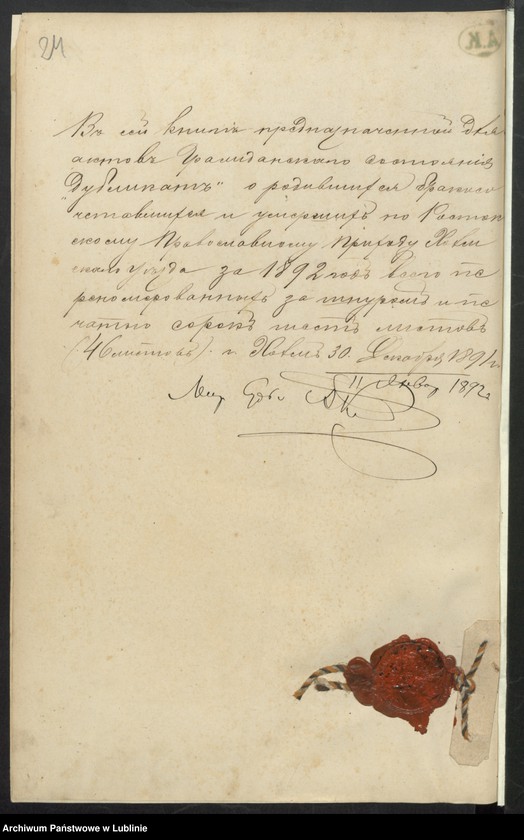 24
А.К
Въ сей книгѣ предназначенной для
актовъ Гражданскаго состоянія
"Дубликатъ" о родившихся бракосо
четавшихся и умершихъ по
скому Православному приходу Холм
скаго уѣзда за 1892 годъ всего пе
рономерованныхъ за шнуромъ и пе
чатью сорокъ шесть листовъ
(46 листовъ). г. Холмъ 30. Декабря 1891 г.
11 Январ 1892 г.
Мир Судья
Archiwum Państwowe w Lublinie